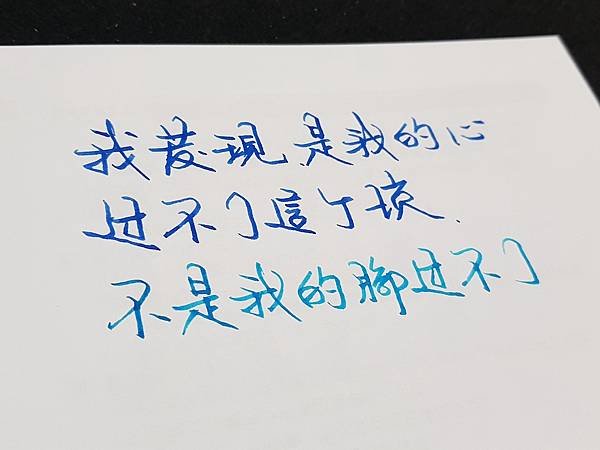 我發現是我的心
过不了這个坎.
不是我的腳过不了